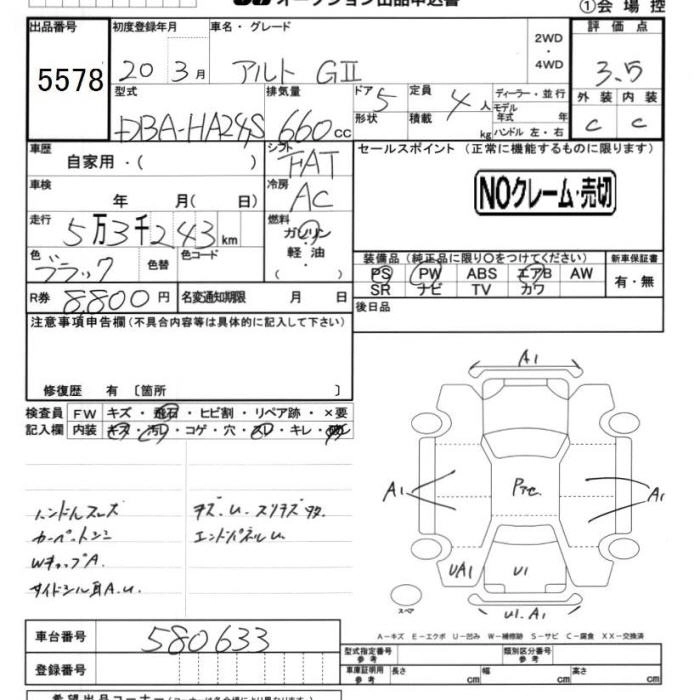 オークション出品申込書
①会場控
出品番号 初度登録年月 車名・グレード 評価点
5578 20 3月 アルト GⅡ 2WD・4WD 3.5
型式 排気量 ドア 定員 ディーラー・並行 外装 内装
DBA-HA24S 660cc 5 4人 モデル年式 年 C C
形状 積載 kg ハンドル 左・右
車歴 シフト セールスポイント (正常に機能するものに限ります)
自家用・( ) FAT
車検 冷房 NOクレーム・売切
年 月(日) AC
走行 燃料
5万3千243km ガソリン・軽油
色 色替 色コード 装備品 (純正品に限り○をつけてください) 新車保証書
ブラック PS PW ABS エアB AW 有・無
SR ナビ TV カワ
R券 8,800円 名変通知期限 月 日 後日品
注意事項申告欄(不具合内容等は具体的に記入して下さい)
修復歴 有 〔箇所 〕
検査員 FW キズ・飛石・ヒビ割・リペア跡・×要
記入欄 内装 キズ・汚レ・コゲ・穴・スレ・キレ・
A1
A1 Pac. A1
UA1 U1
スペア U1.A1
ハンドルスレ
カーペットシミ
WキップA.
サイドシル
キズ.U.スリキズ
エンドパネルU
A-キズ E-エクボ U-凹み W-補修跡 S-サビ C-腐食 XX-交換済
車台番号 580633
登録番号
型式指定番号 参考 類別区分番号 参考
車庫証明用 参考 長さ cm 幅 cm 高さ cm
希望出品コーナー